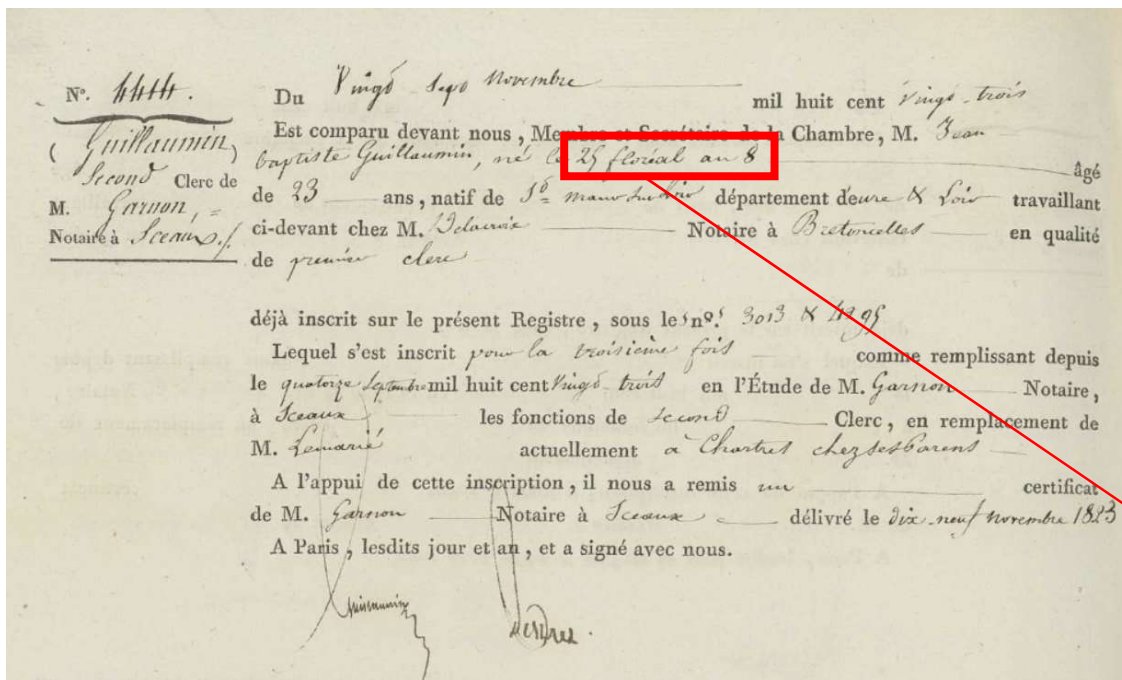 N°. 4444.
(Guillaumin,)
Second Clerc de
M. Garnon, =
Notaire à Sceaux ./.
Du Vingt-Sept Novembre mil huit cent Vingt-trois
Est comparu devant nous, Membre et Secrétaire de la Chambre, M. Jean
baptiste Guillaumin, né le 25 floréal an 8 âgé
de 23 ans, natif de St maur sur Loir département d'eure & Loir travaillant
ci-devant chez M. Delacroix Notaire à Bretoncelles en qualité
de premier clerc
déjà inscrit sur le présent Registre, sous les nos. 3013 & 4295
Lequel s'est inscrit pour la troisième fois comme remplissant depuis
le quatorze Septembre mil huit cent Vingt-trois en l'Étude de M. Garnon Notaire,
à Sceaux les fonctions de second Clerc, en remplacement de
M. Lemarié actuellement à Chartres chez ses Parens
A l'appui de cette inscription, il nous a remis un certificat
de M. Garnon Notaire à Sceaux délivré le dix-neuf novembre 1823
A Paris, lesdits jour et an, et a signé avec nous.
Guillaumin